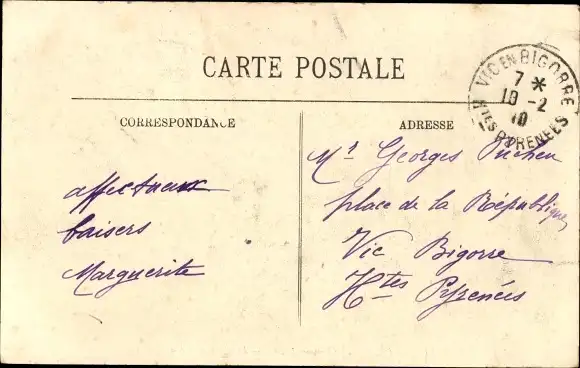 CARTE POSTALE
VIC EN BIGORRE
7 *
10 -2
10
Htes PYRENÉES
CORRESPONDANCE
ADRESSE
affectueux
baisers
Marguerite
Mr Georges
place de la République
Vic Bigorre
Htes Pyrenées